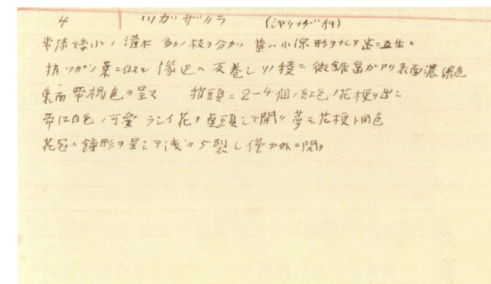 4 ツガザクラ (シャクナゲ科)
常緑矮小ノ灌木 多クノ枝ヲ分カツ 葉ハ小線形ヲナシテ密ニ互生シ
ツガノ葉ニ似 縁辺ハ反巻シ 微鋸歯ガアリ表面濃緑色
裏面帯褐色ヲ呈ス 枝頭ニ2-4個ノ紅色ノ花梗ヲ出シ
帯紅白色ノ可愛ラシイ花ヲ 開ク 萼モ花梗ト同色
花冠ハ鐘形ヲ呈シテ浅ク5裂シ僅カ外ニ開ク